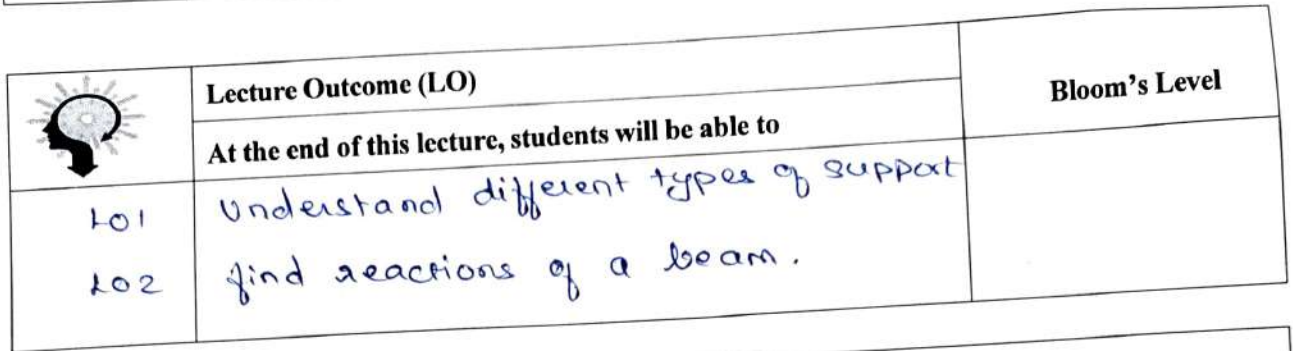 Lecture Outcome (LO)
Bloom's Level
At the end of this lecture, students will be able to
LO1 Understand different types of support
LO2 find reactions of a beam.